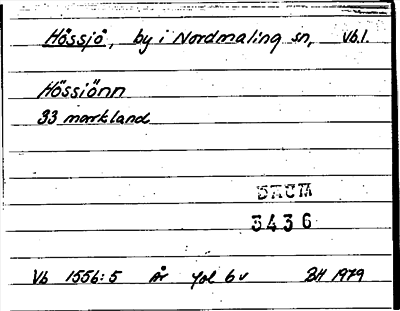 Håssjö, by i Nordmaling sn, Vb.l.
Hössiönn
33 markland
3436
Vb 1556:5 År fol 6 v BH 1979